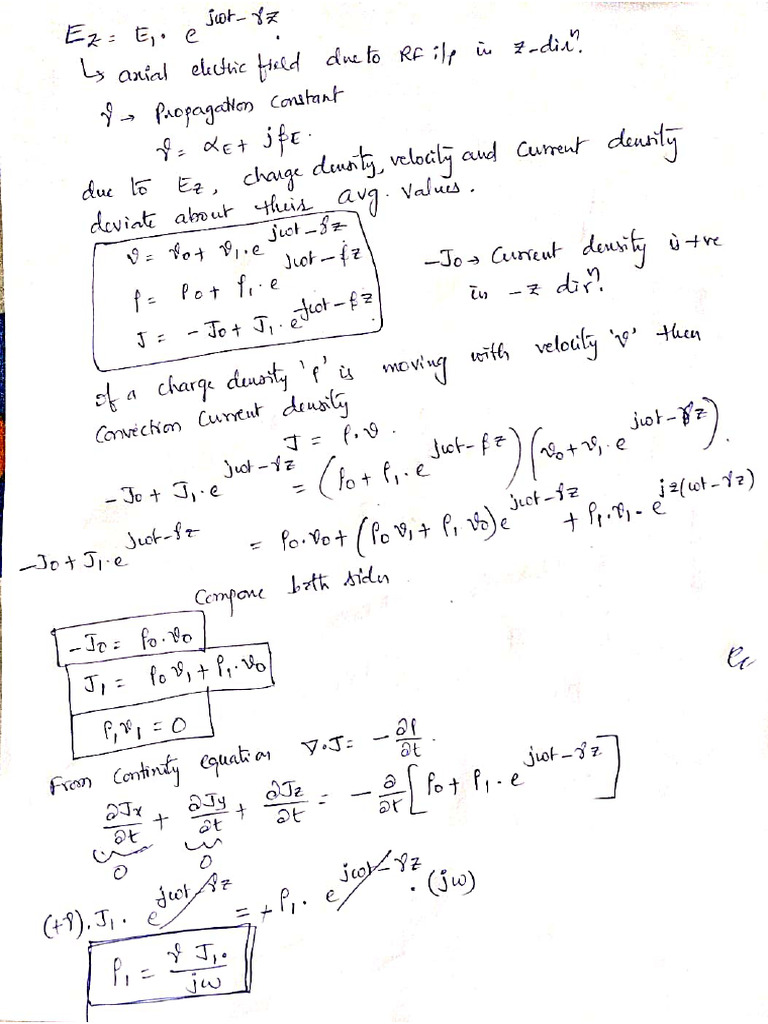 Ez = E₁. e^{jωt-γz}.
↳ axial electric field due to RF i/p in z-dirⁿ.
γ → Propagation constant
γ = αE + jβE.
due to Ez, charge density, velocity and current density
deviate about their avg. values.
v = v₀ + v₁.e^{jωt-γz}
ρ = ρ₀ + ρ₁.e^{jωt-γz}
J = -J₀ + J₁.e^{jωt-γz}
-J₀ → Current density is +ve
in -z dirⁿ.
If a charge density 'ρ' is moving with velocity 'v' then
Convection Current density
J = ρ.v.
-J₀ + J₁.e^{jωt-γz} = (ρ₀ + ρ₁.e^{jωt-γz}) (v₀ + v₁.e^{jωt-γz}).
-J₀ + J₁.e^{jωt-γz} = ρ₀.v₀ + (ρ₀v₁ + ρ₁v₀)e^{jωt-γz} + ρ₁.v₁.e^{j2(ωt-γz)}
Compare both sides
-J₀ = ρ₀.v₀
J₁ = ρ₀v₁ + ρ₁.v₀
ρ₁v₁ = 0
From Continity equation ∇.J = -∂ρ/∂t.
∂Jx/∂t + ∂Jy/∂t + ∂Jz/∂t = -∂/∂t [ρ₀ + ρ₁.e^{jωt-γz}]
0 0
(+γ).J₁.e^{jωt-γz} = +ρ₁.e^{jωt-γz}.(jω)
ρ₁ = γJ₁./jω